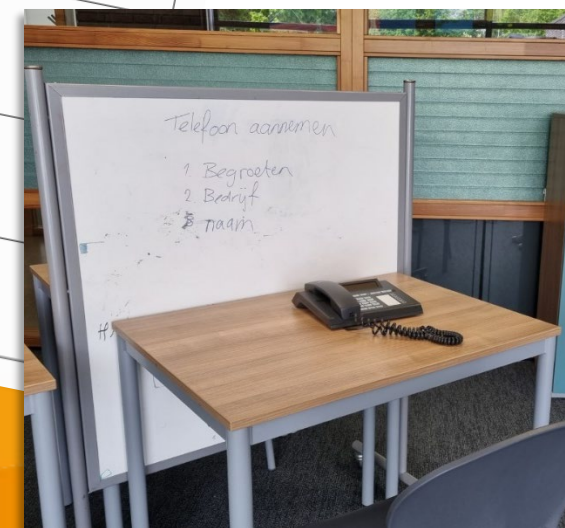 Telefoon aannemen
1 Begroeten
2 Bedrijf
3 naam